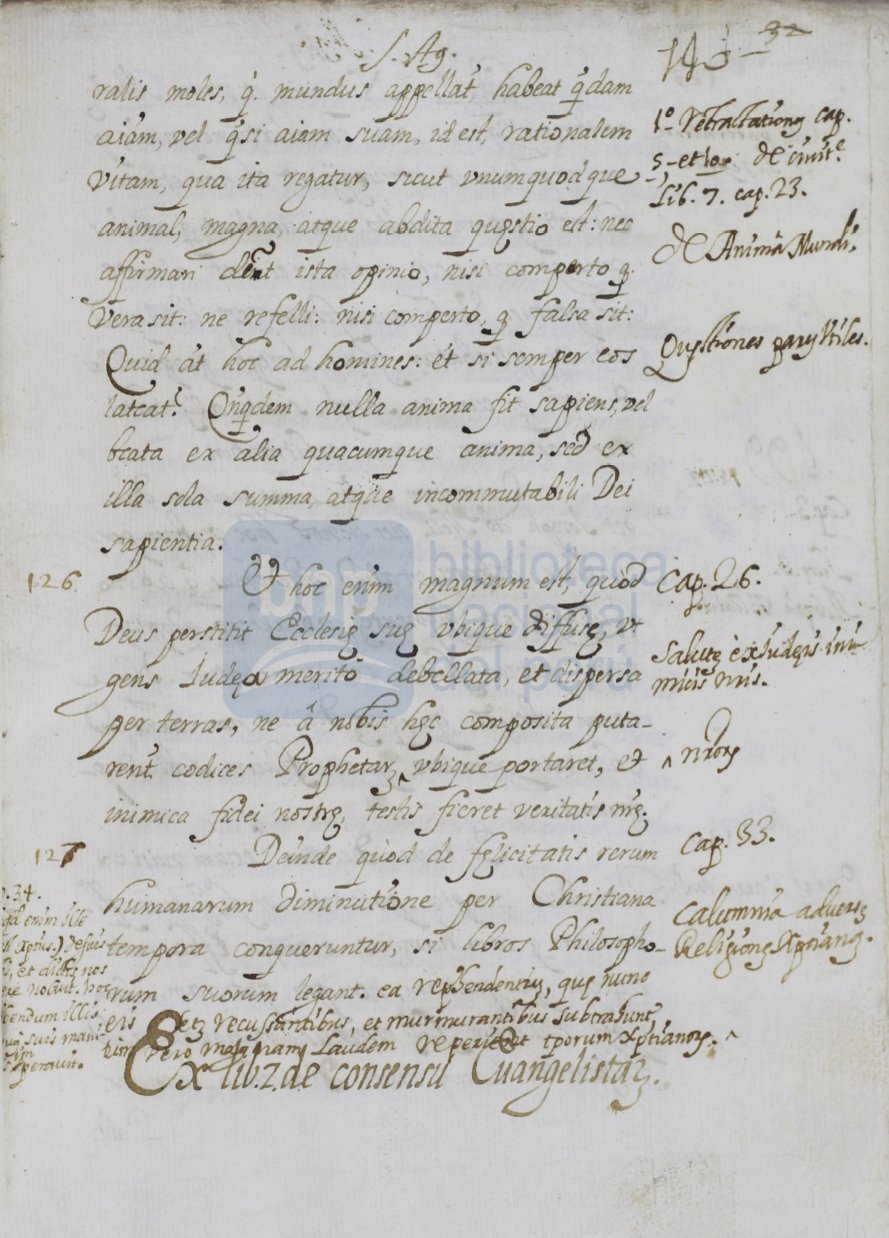 S. Ag.
ralis moles, q̃. mundus appellat̃, habeat q̃dam
aiam, vel q̃si aiam suam, id est, rationalem
vitam, qua ita regatur, sicut vnumquodque
animal, magna, atque abdita quęstio est: nec
affirmari ista opinio, nisi comperto q̃.
vera sit: ne refelli: nisi comperto, q̃ falsa sit:
Quid at̃ hoc ad homines: et si semper eos
lateat? Qñq̃dem nulla anima fit sapiens, vel
beata ex alia quacumque anima, sed ex
illa sola summa, atque incommutabili Dei
sapientia.
1º. retractationũ cap.
5. et
lib. 7. cap. 23.
de Anima Mundi,
Quęstiones parũ vtiles.
126 Et hoc enim magnum est, quod
Deus perstitit Ecclesię suę vbique diffusę, vt
gens Iudęa meritò debellata, et dispersa
per terras, ne â nobis hęc composita puta-
rent̃ codices Prophetarȝ ^ vbique portaret, et
inimica fidei nostrę, testis fieret veritatis nr̃ę.
cap. 26.
Salutẽ ex Iudęis ini-
micis nr̃is.
^ nr̃orũ
127 Deinde quòd de fęlicitatis rerum
humanarum diminutione per Christiana
tempora conqueruntur, si libros Philosopho-
rum suorum legant. ea reprehendentiũ, quę nunc
eis etȝ recusantibus, et murmurantibus subtrahunt̃
magnam laudem reperient tporum Xptianorȝ. ^
cap. 33.
calumnia aduersȝ
Religionẽ Xptianã.
34.
enim ille
et dictis nos
nocuit. hoc
illis
suis
Ex lib. 2. de consensu Euangelistarȝ.
bnp biblioteca
nacional
del perú